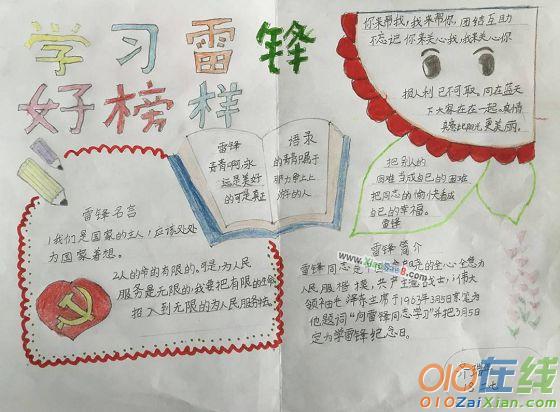 学习雷锋
好榜样
你来帮我，我来帮你，团结互助
不忘记你来关心我，我来关心你
损人利己不可取。同在蓝天
下大家在在一起。真情
真意比阳光更美丽。
雷锋
青春啊，永
远是美好
的可是真正
语录
的青春只属于
那力争上
游的人
把别人的
困难当成自己的困难
把同志的愉快看成
自己的幸福。
雷锋
雷锋名言
1我们是国家的主人，应该处处
为国家着想。
2人的命的有限的，可是，为人民
服务是无限的，我要把有限的生命
投入到无限的为人民服务去。
雷锋简介
雷锋同志是
全心全意为
人民服
共产主义战士，伟大
领袖毛泽东主席于1963年3月5日亲笔为
他题词“向雷锋同志学习”并把3月5日
定为学雷锋纪念日。
www.XiaoSaoB.com
010在线
010ZaiXian.com